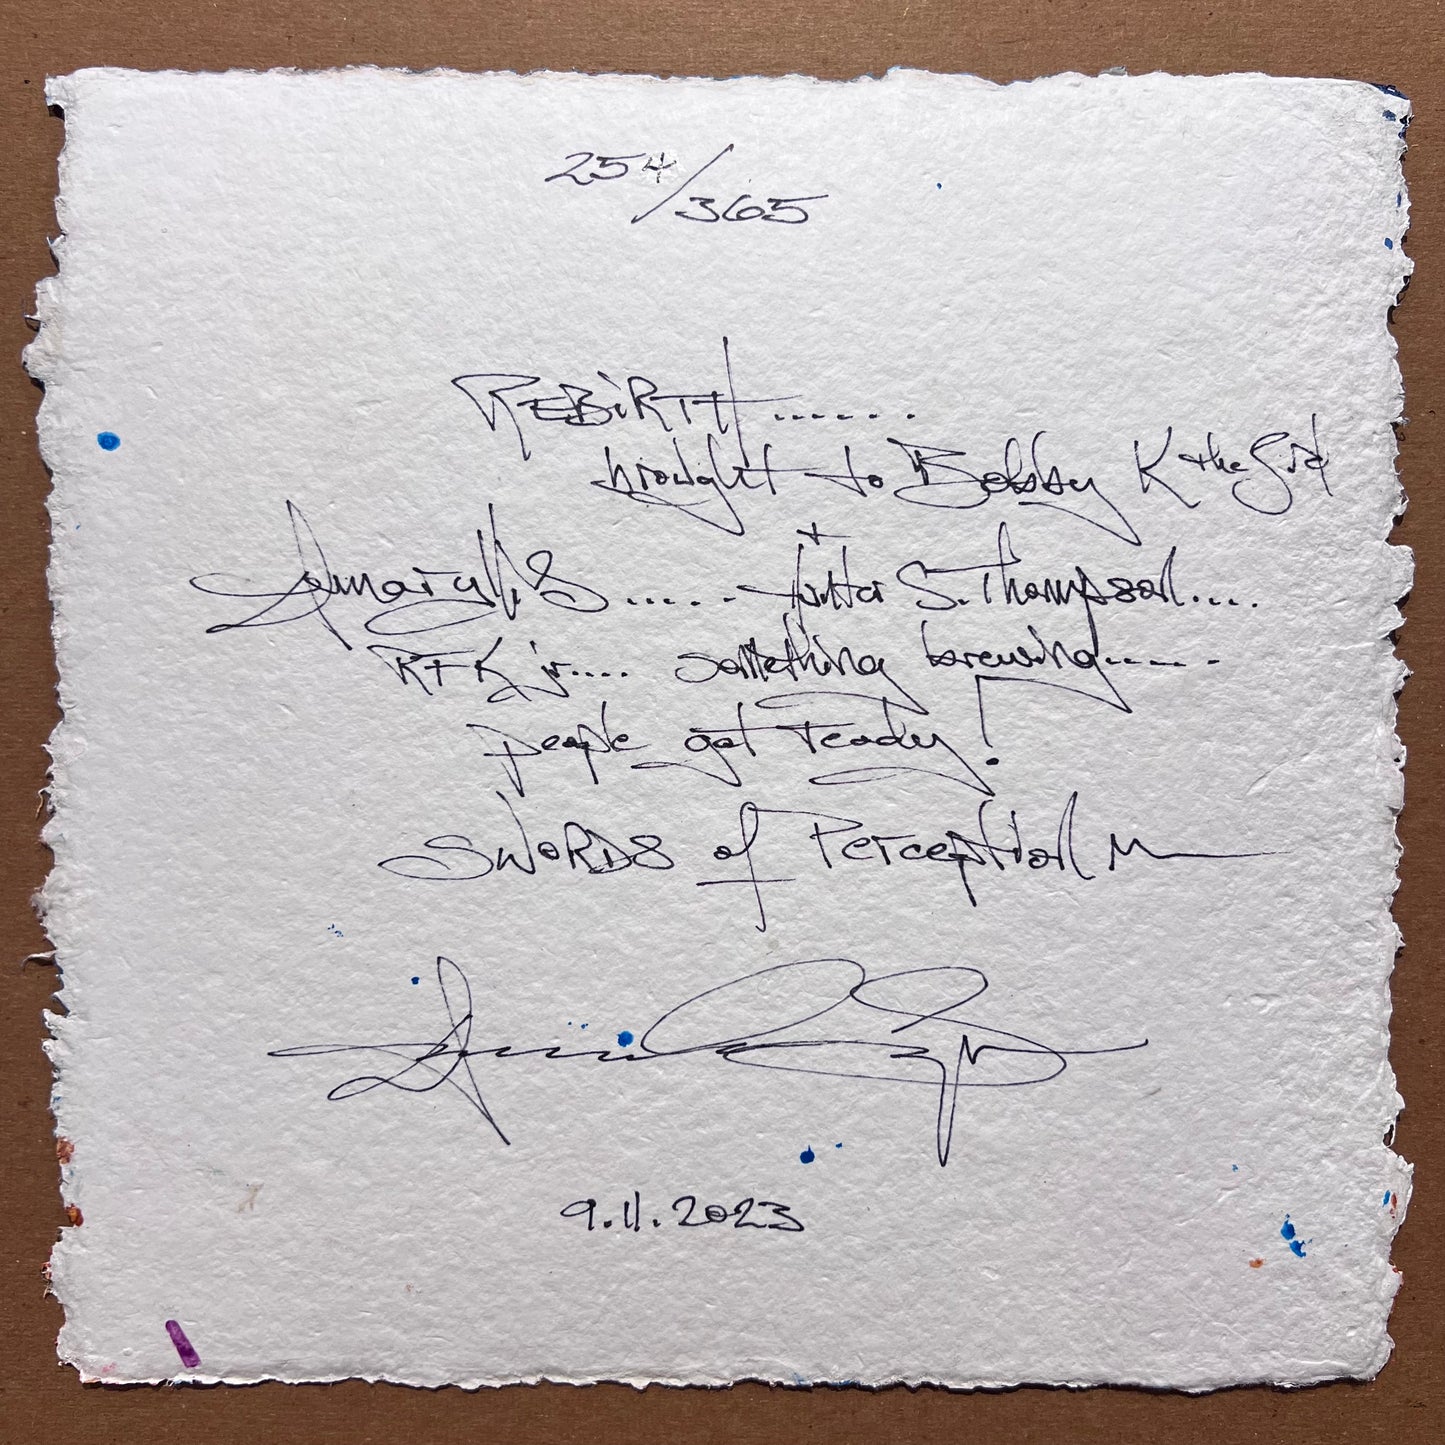 254/365
REBiRTH......
brought to Bobby K the
Amaryllis......+ Hunter S. Thompson....
RFK jr.... something brewing.....
people get ready!
SWORDS of Perception
9.11.2023